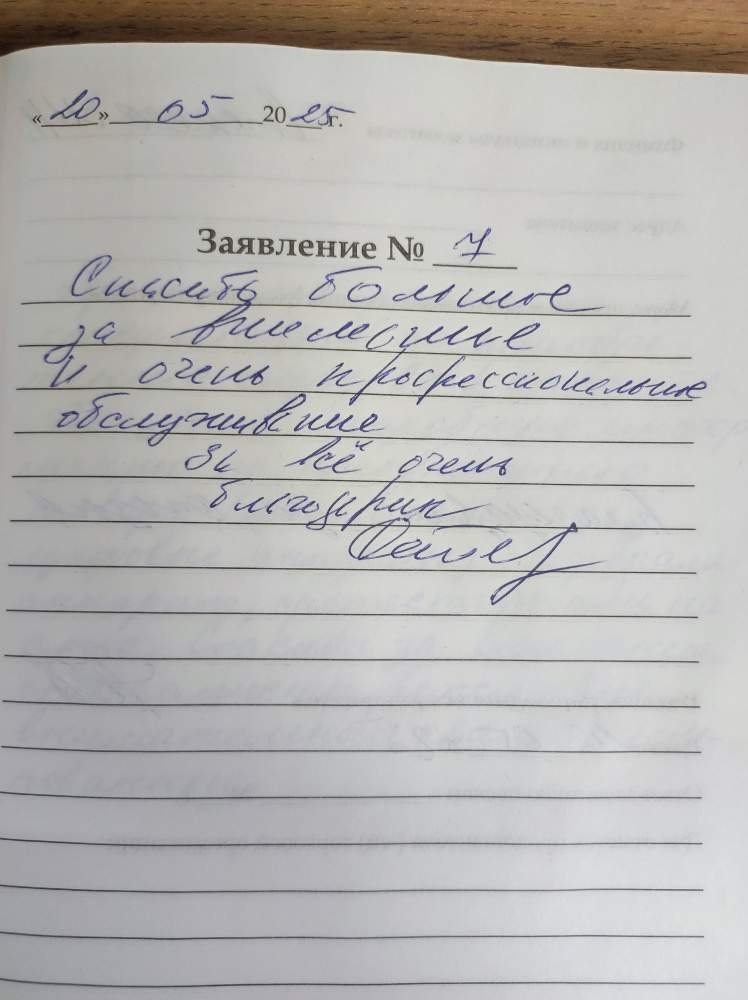 «20» 05 2025г.
Заявление № 7
Спасибо большое
за внимание
и очень профессиональное
обслуживание
За всё очень
благодарен